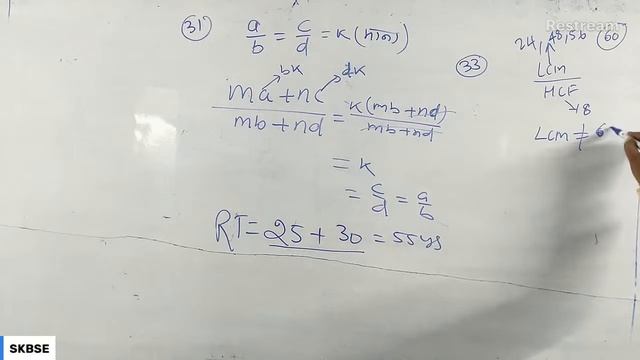 31) a/b = c/d = k (माना)
bk dk
ma + nc / mb + nd = k(mb + nd) / mb + nd
= k
= c/d = a/b
RT = 25 + 30 = 55 ys
33
24, 48, 56 60
LCM
HCF
→ 8
LCM ≠ 6
Restream
SKBSE